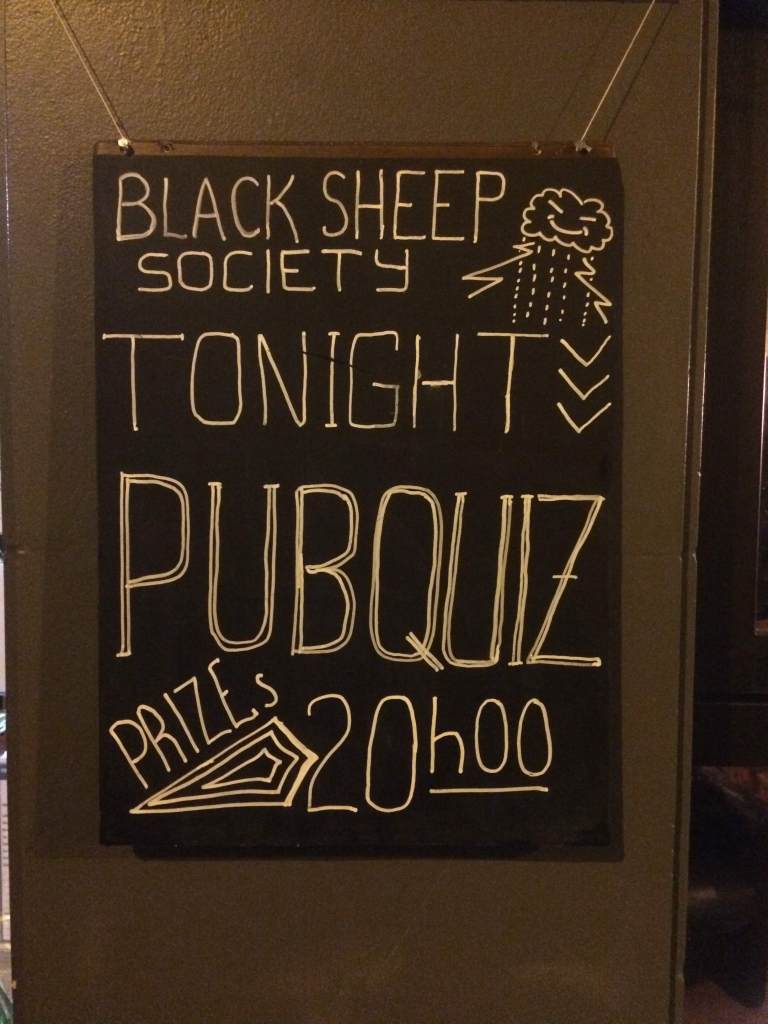 BLACK SHEEP
SOCIETY
TONIGHT
PUBQUIZ
PRIZES
20h00